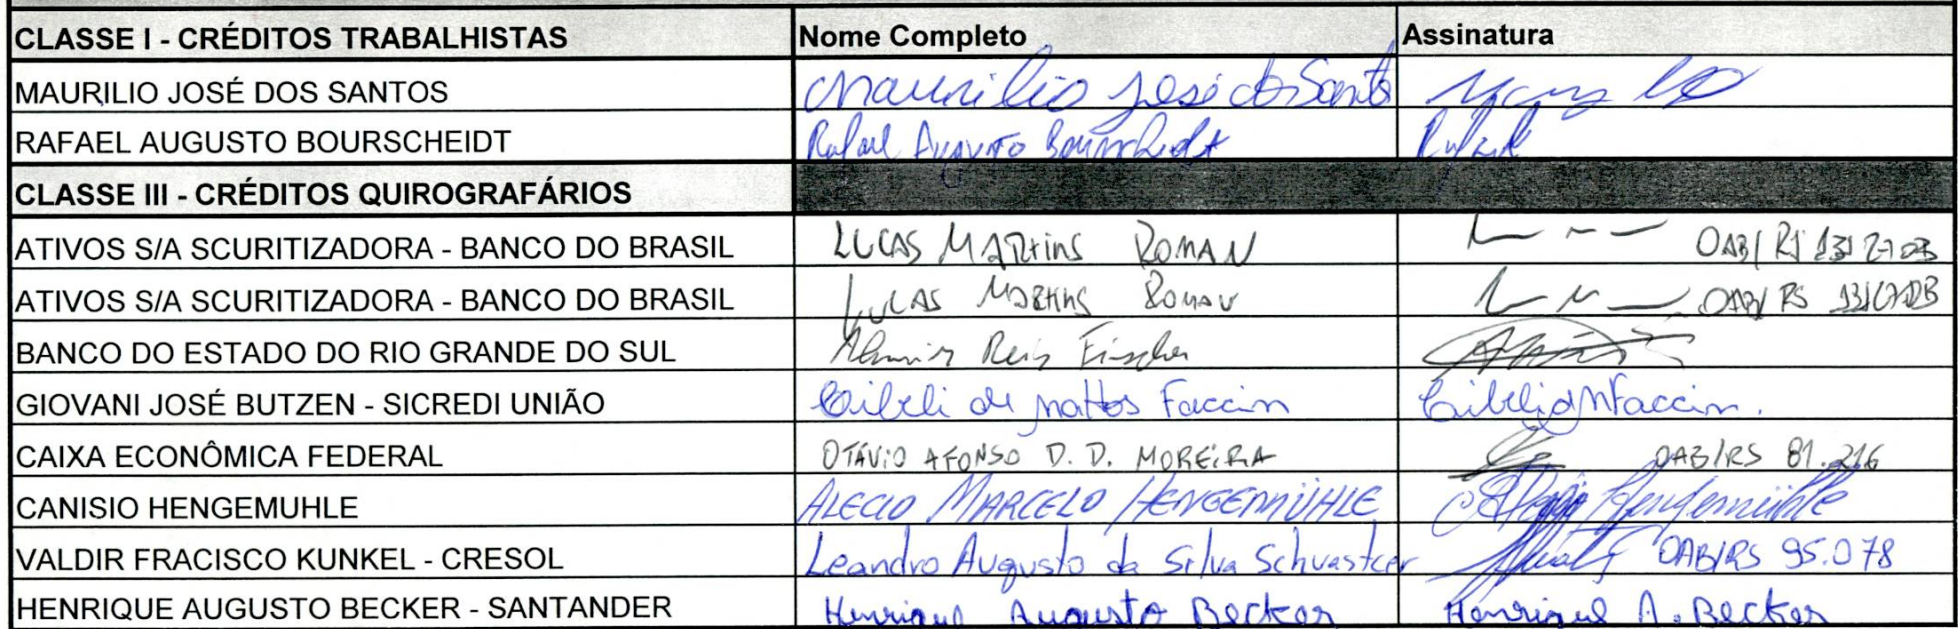 CLASSE I - CRÉDITOS TRABALHISTAS Nome Completo Assinatura
MAURILIO JOSÉ DOS SANTOS Maurilio José dos Santos
RAFAEL AUGUSTO BOURSCHEIDT Rafael Augusto Bourscheidt Rafael
CLASSE III - CRÉDITOS QUIROGRAFÁRIOS
ATIVOS S/A SCURITIZADORA - BANCO DO BRASIL LUCAS MARTINS ROMAN OAB/
ATIVOS S/A SCURITIZADORA - BANCO DO BRASIL LUCAS MARTINS ROMAN OAB/ RS
BANCO DO ESTADO DO RIO GRANDE DO SUL Reis Fischer
GIOVANI JOSÉ BUTZEN - SICREDI UNIÃO Cibeli de Mattos Faccin CibelidMFaccin.
CAIXA ECONÔMICA FEDERAL OTÁVIO AFONSO D. D. MOREIRA OAB/RS 81.216
CANISIO HENGEMUHLE ALECIO MARCELO HENGEMÜHLE Hengemühle
VALDIR FRACISCO KUNKEL - CRESOL Leandro Augusto da Silva Schvastcer OAB/RS 95.078
HENRIQUE AUGUSTO BECKER - SANTANDER Henrique Augusto Becker Henrique A. Becker